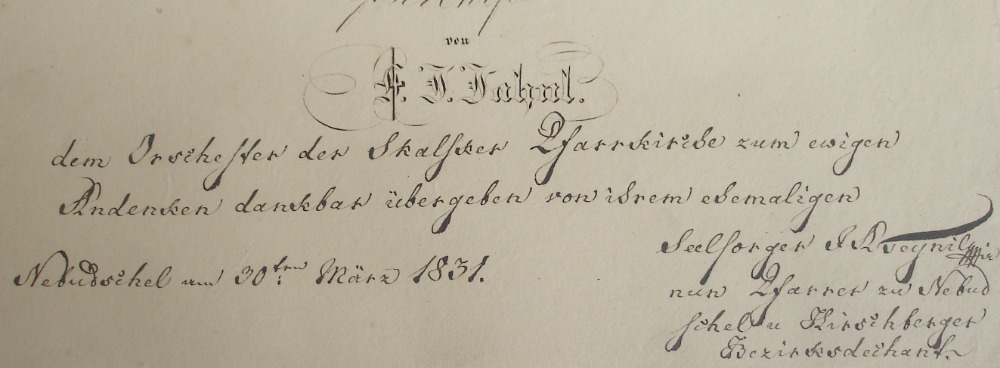 von
F. I. Jahnl.
dem Orchester der Skalsker Pfarrkirche zum ewigen
Andenken dankbar übergeben von ihrem ehemaligen
Seelsorger
Nebudschel am 30ten März 1831.
nun Pfarrer zu Nebud
schel u Hirschberger
Bezirksdechant.